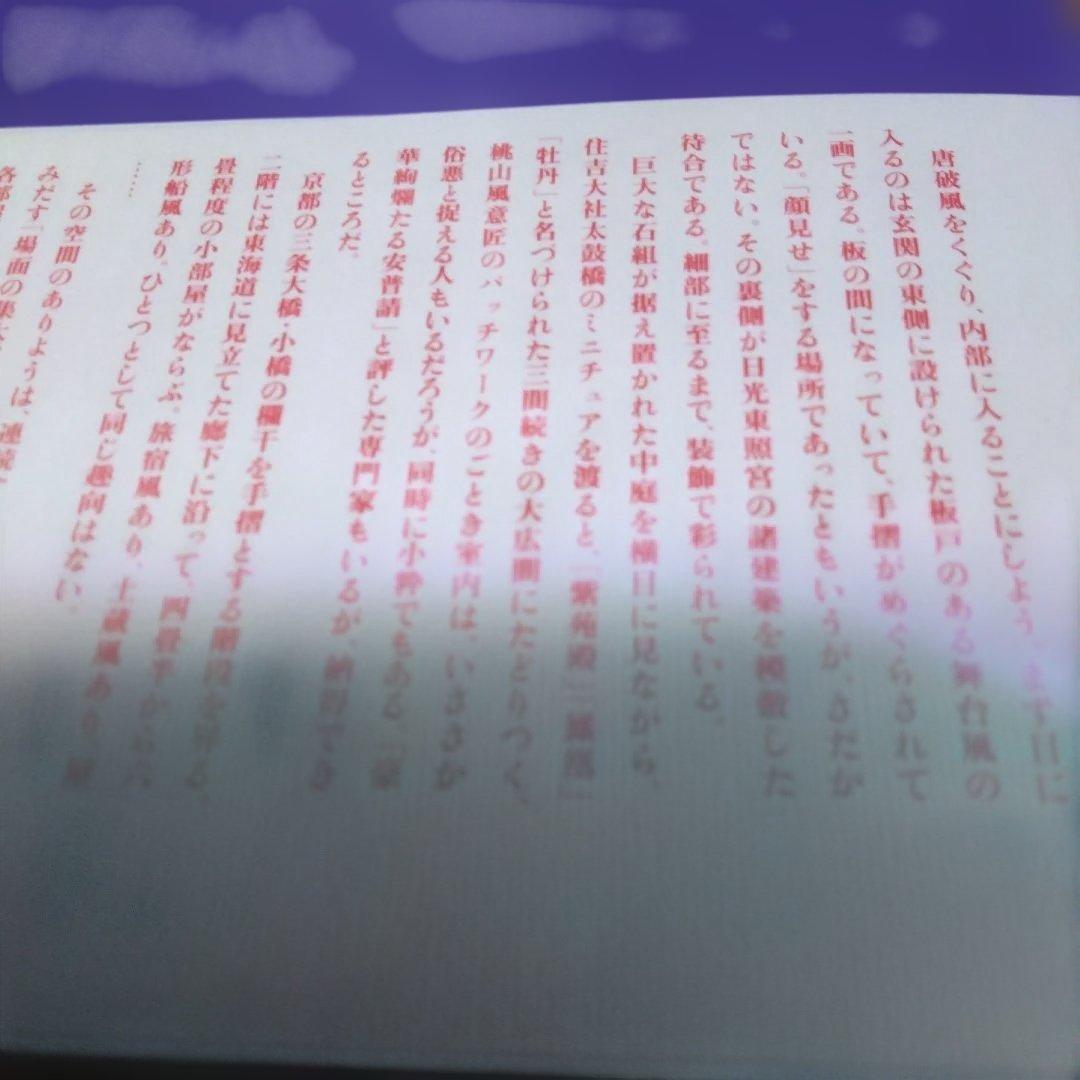 唐破風をくぐり、内部に入ることにしよう。まず目に
入るのは玄関の東側に設けられた板戸のある舞台風の
一画である。板の間になっていて、手摺がめぐらされて
いる。「顔見せ」をする場所であったともいうが、さだか
ではない。その裏側が日光東照宮の諸建築を模した
待合である。細部に至るまで、装飾で彩られている。
巨大な石組が据え置かれた中庭を横目に見ながら、
住吉大社太鼓橋のミニチュアを渡ると、「紫苑殿」「鳳凰」
「牡丹」と名づけられた三間続きの大広間にたどりつく。
桃山風意匠のパッチワークのごとき室内は、いささか
俗悪と捉える人もいるだろうが、同時に小粋でもある。「豪
華絢爛たる安普請」と評した専門家もいるが、納得でき
るところだ。
京都の三条大橋・小橋の欄干を手摺とする階段を昇る。
二階には東海道に見立てた廊下に沿って、四畳半から六
畳程度の小部屋がならぶ。旅宿風あり、土蔵風あり、屋
形船風あり、ひとつとして同じ趣向はない。
……
その空間のありようは、連続
みだす「場面の集
各部屋